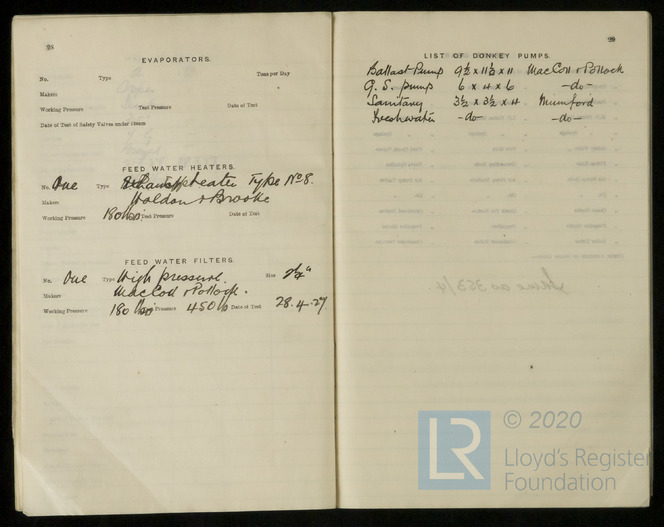 28
EVAPORATORS.
No. Type Tons per Day
Makers
Working Pressure Test Pressure Date of Test
Date of Test of Safety Valves under steam
FEED WATER HEATERS.
No. One Type heater Type No 8.
Makers Holdon & Brooke
Working Pressure 180 lbs Test Pressure Date of Test
FEED WATER FILTERS.
No. One Type High pressure. Size 2½"
Makers MacColl & Pollock.
Working Pressure 180 lbs Test Pressure 450 lb Date of Test 28.4.27.
29
LIST OF DONKEY PUMPS.
Ballast Pump 9½ x 11½ x 11 MacColl & Pollock
G. S. pump 6 x 4 x 6 -do-
Sanitary 3½ x 3½ x 4 Mumford
Freshwater -do- -do-
LR
© 2020
Lloyd's Register
Foundation